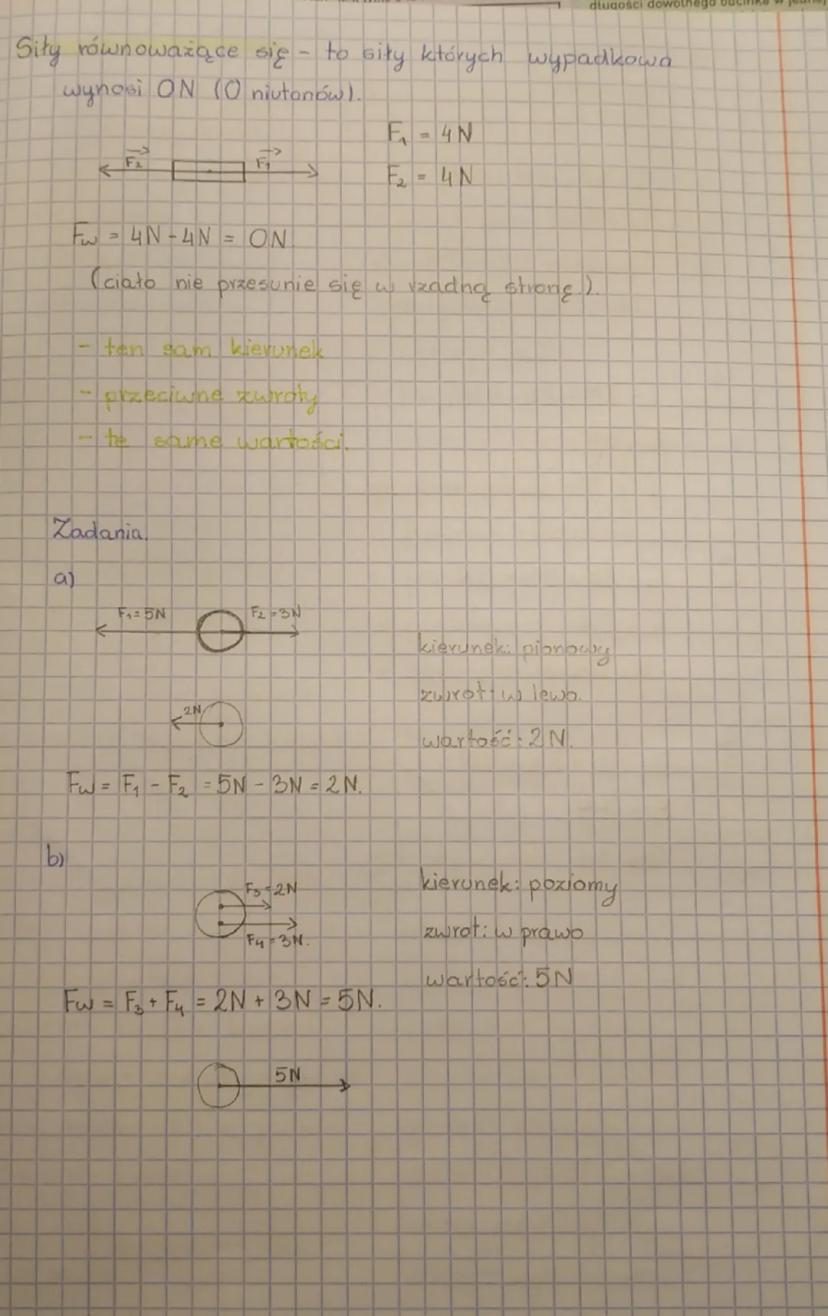 długości dowolnego odcinka w jedne
Siły równoważące się - to siły których wypadkowa
wynosi 0N (0 niutonów).
F₂ F₁
F₁ = 4N
F₂ = 4N
Fw = 4N - 4N = 0N
(ciało nie przesunie się w rzadną stronę).
- ten sam kierunek
- przeciwne zwroty
- te same wartości.
Zadania.
a)
F₁=5N F₂=3N
kierunek: pionowy
zwrot: w lewo.
2N
wartość: 2N.
Fw = F₁ - F₂ = 5N - 3N = 2N.
b)
F₃=2N
kierunek: poziomy
F₄=3N.
zwrot: w prawo
wartość: 5N
Fw = F₃ + F₄ = 2N + 3N = 5N.
5N